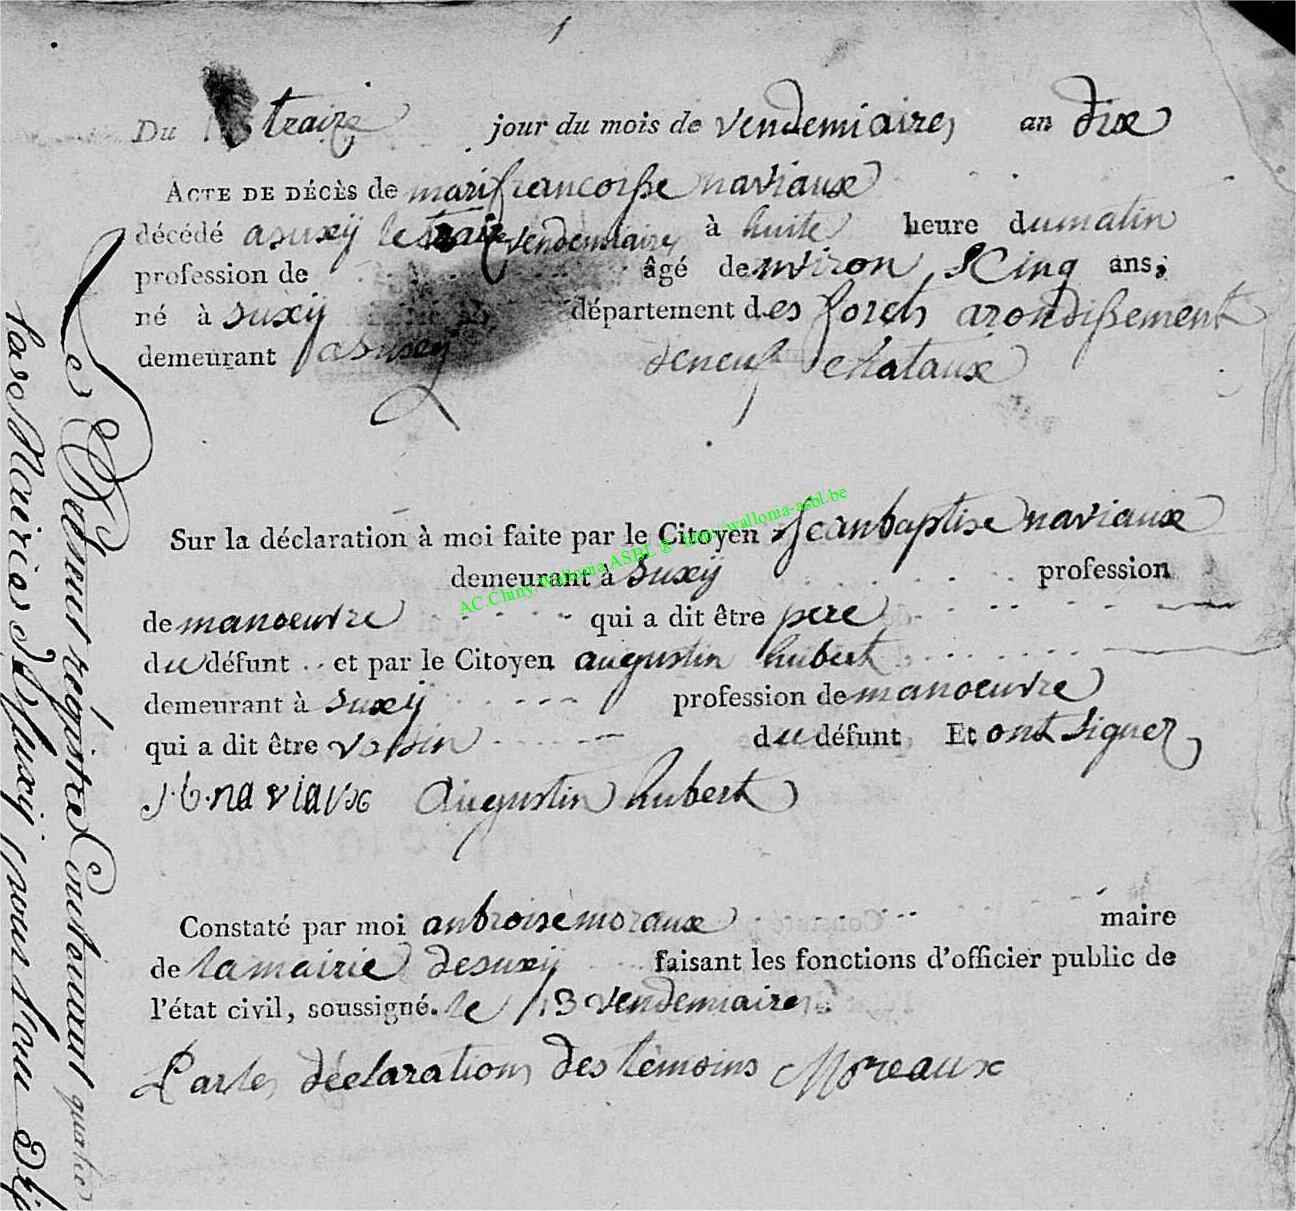 1
Du traize jour du mois de vendemiaire an dix
ACTE DE DÉCÈS de marifrancoisse naviaux
décédé a suxÿ le traize vendemiaire à huite heure du matin
profession de âgé denviron Cinq ans,
né à suxÿ département des forets arondissement
demeurant a suxÿ deneuf chataux
Sur la déclaration à moi faite par le Citoyen Jeanbaptise naviaux
demeurant à suxÿ profession
de manoeuvre qui a dit être pere
du défunt et par le Citoyen augustin hubert
demeurant à suxÿ profession de manoeuvre
qui a dit être voisin du défunt Et ont signer
j.b.naviaux Augustin hubert
Constaté par moi anbroise moraux maire
de la mairie desuxÿ faisant les fonctions d'officier public de
l'état civil, soussigné. le 13 vendemiaire
Par les déclaration des témoins Moreaux
Le Présent régistre Contenant quatre
pour l'an dix
AC Chiny Wallonia ASBL © www.wallonia-asbl.be